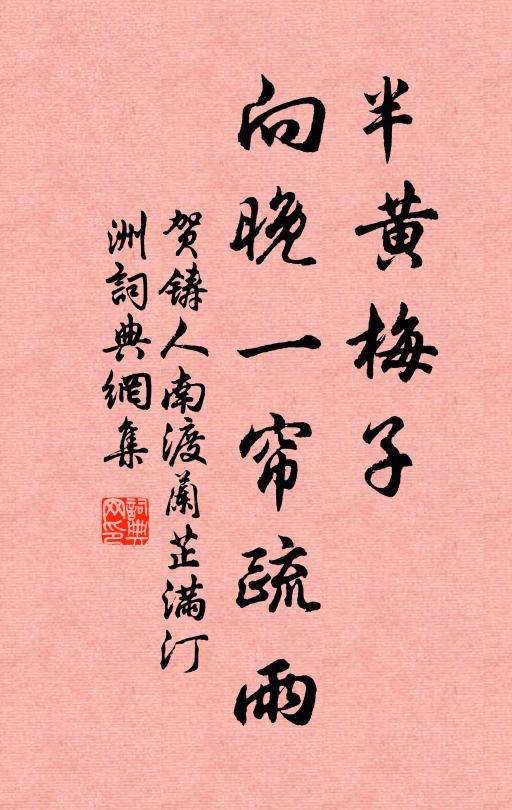 半黄梅子
向晚一帘疏雨
贺铸人南渡蘭芷滿汀
洲詞典網集
詞典
网印